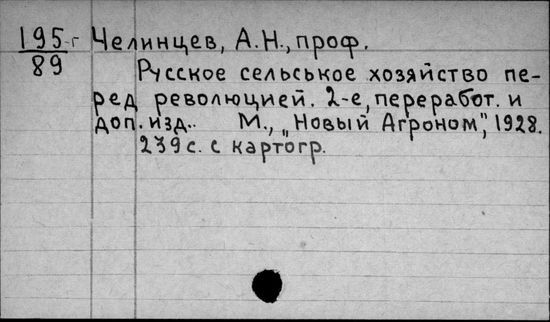 195-г Челинцев, А.Н., проф.
89
Русское сельськое хозяйство пе-
ред революцией. 2-е, переработ. и
доп. изд.. М., „Новый Агроном", 1928.
239 с. с картогр.